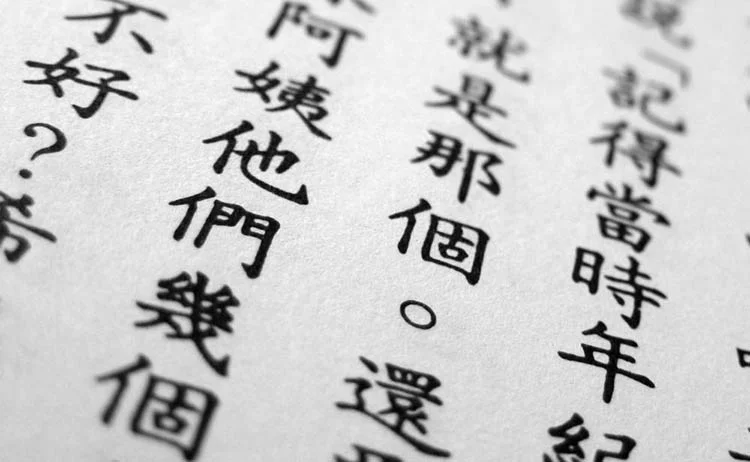 說「記得當時年紀
就是那個。還
阿姨他們幾個
不好？
希